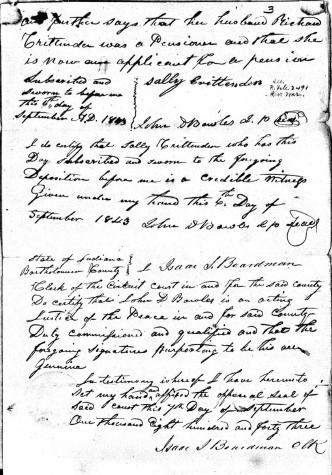 3
and further says that her husband Richard
Crittenden was a Pensioner and that she
is now an applicant for a pension
Subscribed and
sworn to before me
this 6th day of
September A.D. 1843
Sally Crittenden
John D Bowles J. P. seal
I do certify that Sally Crittenden who has this
Day Subscribed and sworn to the forgoing
Deposition before me is a credible Witness
Given under my hand this 6th Day of
September 1843 John D Bowles J P seal
State of Indiana
Bartholomew County
I Isaac S Boardman
Clerk of the Circuit Court in and for the said county
Do certify that John D Bowles is an acting
Justice of the Peace in and for said County
Duly Commissioned and qualified and that the
forgoing signatures purporting to be his are
Genuine
In testimony whereof I have hereunto
Set my hand and affixed the official seal of
said court this 7th Day of September
One thousand Eight hundred and forty three
Isaac S Boardman Clk